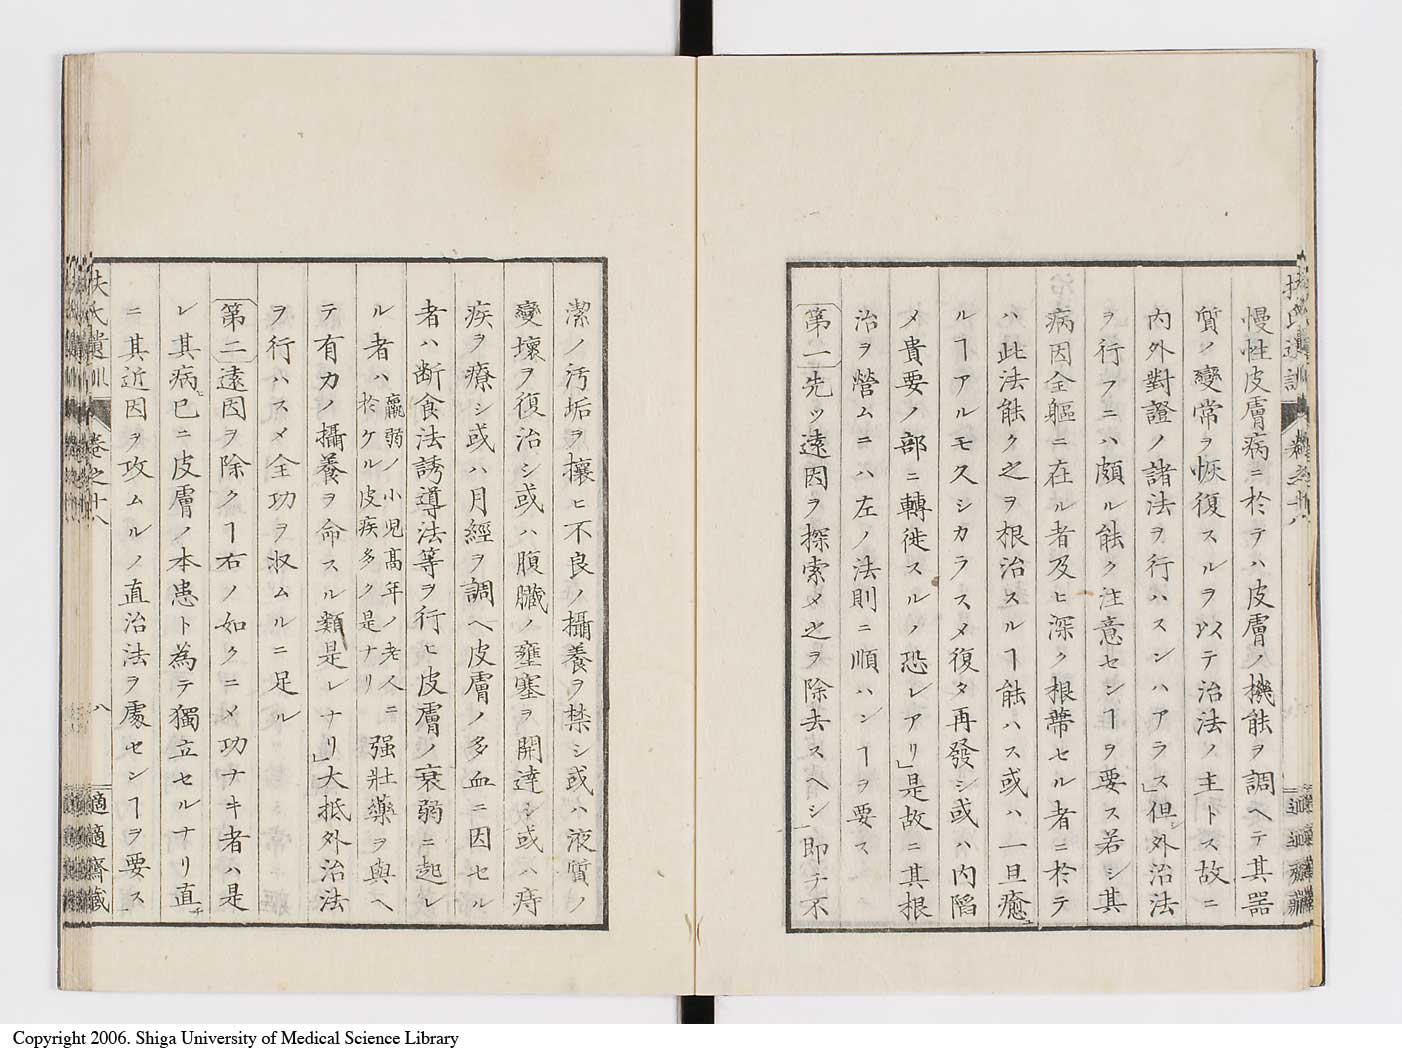 慢性皮膚病ニ於テハ皮膚ノ機能ヲ調ヘテ其器
質ノ變常ヲ恢復スルヲ以テ治法ノ主トス故ニ
内外對證ノ諸法ヲ行ハスンハアラス」但シ外治法
ヲ行フニハ頗ル能ク注意センヿヲ要ス若シ其
病因全軀ニ在ル者及ヒ深ク根蔕セル者ニ於テ
ハ此法能ク之ヲ根治スルヿ能ハス或ハ一旦癒ユ
ルヿアルモ久シカラスメ復タ再發シ或ハ内陷
メ貴要ノ部ニ轉徙スルノ恐レアリ」是故ニ其根
治ヲ營ムニハ左ノ法則ニ順ハンヿヲ要ス
第一先ツ遠因ヲ探索メ之ヲ除去スヘシ」即チ不
潔ノ汚垢ヲ攘ヒ不良ノ攝養ヲ禁シ或ハ液質ノ
變壞ヲ復治シ或ハ腹臟ノ壅塞ヲ開達シ或ハ痔
疾ヲ療シ或ハ月經ヲ調ヘ皮膚ノ多血ニ因セル
者ハ断食法誘導法等ヲ行ヒ皮膚ノ衰弱ニ起レ
ル者ハ羸弱ノ小兒髙年ノ老人ニ於ケル皮疾多ク是ナリ强壯藥ヲ與ヘ
テ有力ノ攝養ヲ命スル類是レナリ」大抵外治法
ヲ行ハスメ全功ヲ収ムルニ足ル
第二遠因ヲ除クヿ右ノ如クニメ功ナキ者ハ是
レ其病已ニ皮膚ノ本患ト為テ獨立セルナリ直チ
ニ其近因ヲ攻ムルノ直治法ヲ處センヿヲ要ス
扶氏遺訓 卷之十八 八 適適齋藏